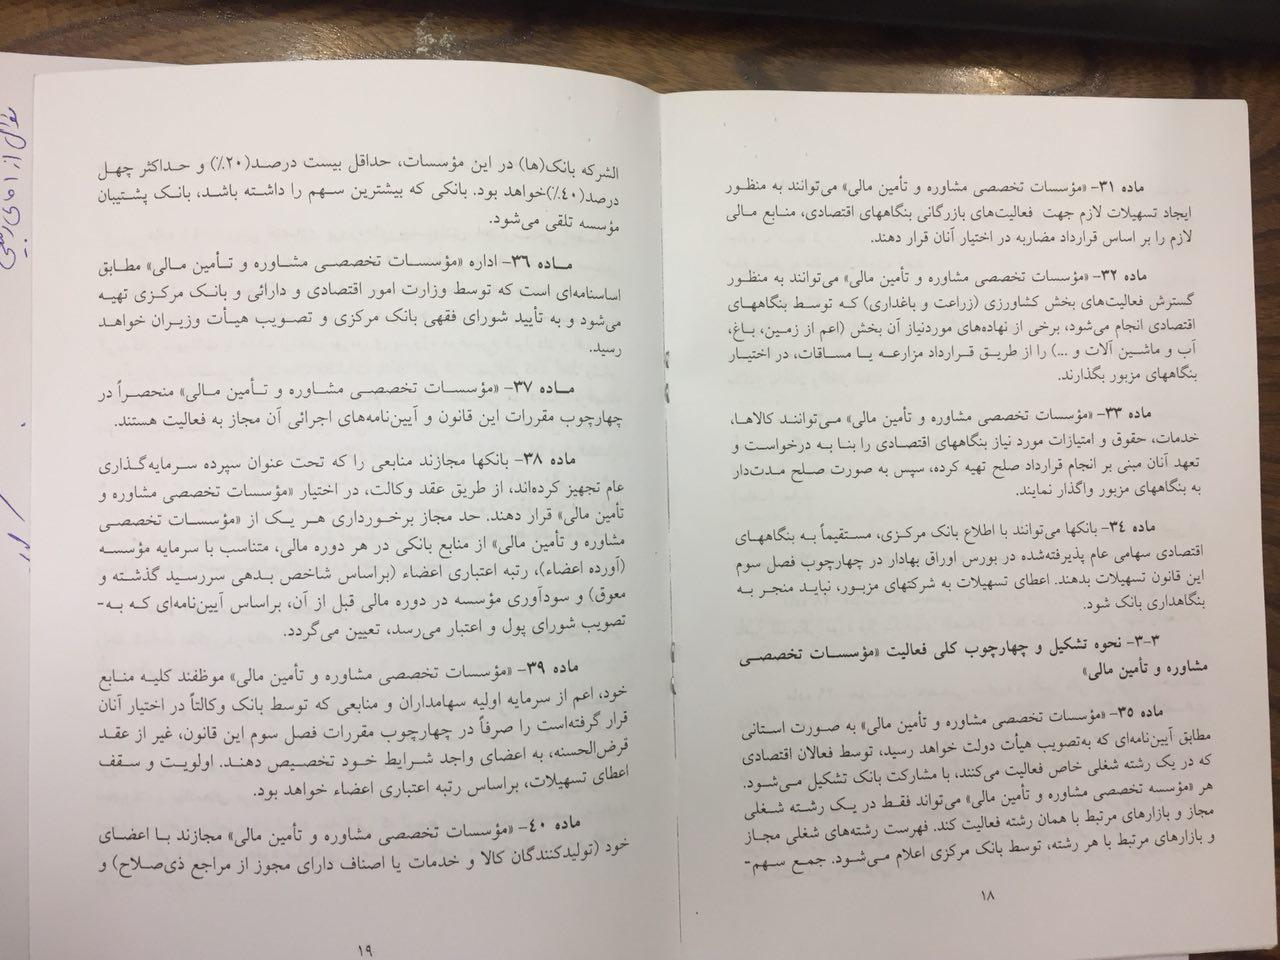 ماده ۳۱- «مؤسسات تخصصی مشاوره و تأمین مالی» می‌توانند به منظور
ایجاد تسهیلات لازم جهت فعالیت‌های بازرگانی بنگاههای اقتصادی، منابع مالی
لازم را بر اساس قرارداد مضاربه در اختیار آنان قرار دهند.
ماده ۳۲- «مؤسسات تخصصی مشاوره و تأمین مالی» می‌توانند به منظور
گسترش فعالیت‌های بخش کشاورزی (زراعت و باغداری) که توسط بنگاههای
اقتصادی انجام می‌شود، برخی از نهاده‌های موردنیاز آن بخش (اعم از زمین، باغ،
آب و ماشین آلات و ...) را از طریق قرارداد مزارعه یا مساقات، در اختیار
بنگاههای مزبور بگذارند.
ماده ۳۳- «مؤسسات تخصصی مشاوره و تأمین مالی» می‌توانند کالاها،
خدمات، حقوق و امتیازات مورد نیاز بنگاههای اقتصادی را بنا به درخواست و
تعهد آنان مبنی بر انجام قرارداد صلح تهیه کرده، سپس به صورت صلح مدت‌دار
به بنگاههای مزبور واگذار نمایند.
ماده ۳۴- بانکها می‌توانند با اطلاع بانک مرکزی، مستقیماً به بنگاههای
اقتصادی سهامی عام پذیرفته‌شده در بورس اوراق بهادار در چهارچوب فصل سوم
این قانون تسهیلات بدهند. اعطای تسهیلات به شرکتهای مزبور، نباید منجر به
بنگاهداری بانک شود.
۳-۳- نحوه تشکیل و چهارچوب کلی فعالیت «مؤسسات تخصصی
مشاوره و تأمین مالی»
ماده ۳۵- «مؤسسات تخصصی مشاوره و تأمین مالی» به صورت استانی
مطابق آیین‌نامه‌ای که به‌تصویب هیأت دولت خواهد رسید، توسط فعالان اقتصادی
که در یک رشته شغلی خاص فعالیت می‌کنند، با مشارکت بانک تشکیل می‌شود.
هر «مؤسسه تخصصی مشاوره و تأمین مالی» می‌تواند فقط در یک رشته شغلی
مجاز و بازارهای مرتبط با همان رشته فعالیت کند. فهرست رشته‌های شغلی مجاز
و بازارهای مرتبط با هر رشته، توسط بانک مرکزی اعلام می‌شود. جمع سهم-
۱۸
الشرکه بانک(ها) در این مؤسسات، حداقل بیست درصد(۲۰٪) و حداکثر چهل
درصد(۴۰٪)خواهد بود. بانکی که بیشترین سهم را داشته باشد، بانک پشتیبان
مؤسسه تلقی می‌شود.
ماده ۳۶- اداره «مؤسسات تخصصی مشاوره و تأمین مالی» مطابق
اساسنامه‌ای است که توسط وزارت امور اقتصادی و دارائی و بانک مرکزی تهیه
می‌شود و به تأیید شورای فقهی بانک مرکزی و تصویب هیأت وزیران خواهد
رسید.
ماده ۳۷- «مؤسسات تخصصی مشاوره و تأمین مالی» منحصراً در
چهارچوب مقررات این قانون و آیین‌نامه‌های اجرائی آن مجاز به فعالیت هستند.
ماده ۳۸- بانکها مجازند منابعی را که تحت عنوان سپرده سرمایه‌گذاری
عام تجهیز کرده‌اند، از طریق عقد وکالت، در اختیار «مؤسسات تخصصی مشاوره و
تأمین مالی» قرار دهند. حد مجاز برخورداری هر یک از «مؤسسات تخصصی
مشاوره و تأمین مالی» از منابع بانکی در هر دوره مالی، متناسب با سرمایه مؤسسه
(آورده اعضاء)، رتبه اعتباری اعضاء (براساس شاخص بدهی سررسید گذشته و
معوق) و سودآوری مؤسسه در دوره مالی قبل از آن، براساس آیین‌نامه‌ای که به-
تصویب شورای پول و اعتبار می‌رسد، تعیین می‌گردد.
ماده ۳۹- «مؤسسات تخصصی مشاوره و تأمین مالی» موظفند کلیه منابع
خود، اعم از سرمایه اولیه سهامداران و منابعی که توسط بانک وکالتاً در اختیار آنان
قرار گرفته‌است را صرفاً در چهارچوب مقررات فصل سوم این قانون، غیر از عقد
قرض‌الحسنه، به اعضای واجد شرایط خود تخصیص دهند. اولویت و سقف
اعطای تسهیلات، براساس رتبه اعتباری اعضاء خواهد بود.
ماده ۴۰- «مؤسسات تخصصی مشاوره و تأمین مالی» مجازند با اعضای
خود (تولیدکنندگان کالا و خدمات یا اصناف دارای مجوز از مراجع ذی‌صلاح) و
۱۹
سؤال از